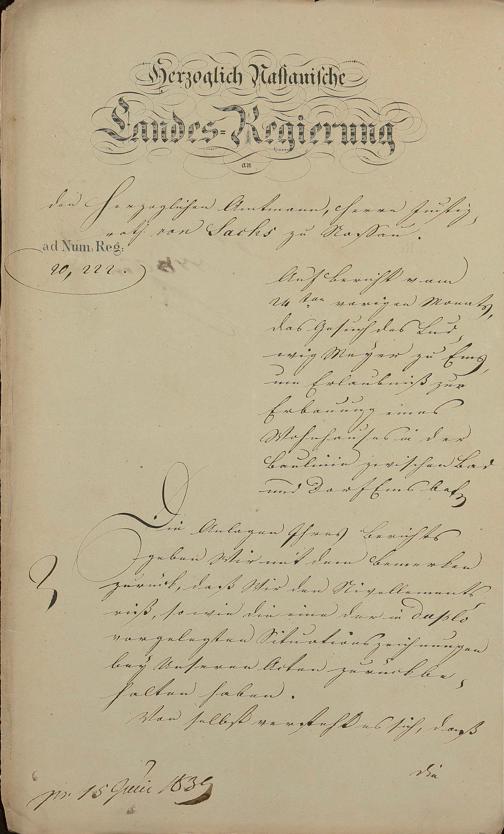 Herzoglich Nassauische
Landes-Regierung
an
den Herzoglichen Amtmann, Herrn Justiz,
rath von Sachs zu Nassau.
ad Num. Reg:
20,222.
Auf Bericht vom
24ten vorigen Monats,
das Gesuch des Lud,
wig Meyer zu Ems
um Erlaubniß zur
Erbauung eines
Wohnhauses in der
Baulinie zwischen Bad
und Dorf Ems betr
Die Anlagen Ihres Berichts
geben Wir mit dem Bemerken
zurück, daß Wir den Nivellements
riß, sowie die eine der in duplo
vorgelegten Situationszeichnungen
bey Unseren Acten zurückbe,
halten haben.
Von selbst versteht es sich, daß
die
pr. 15 1839